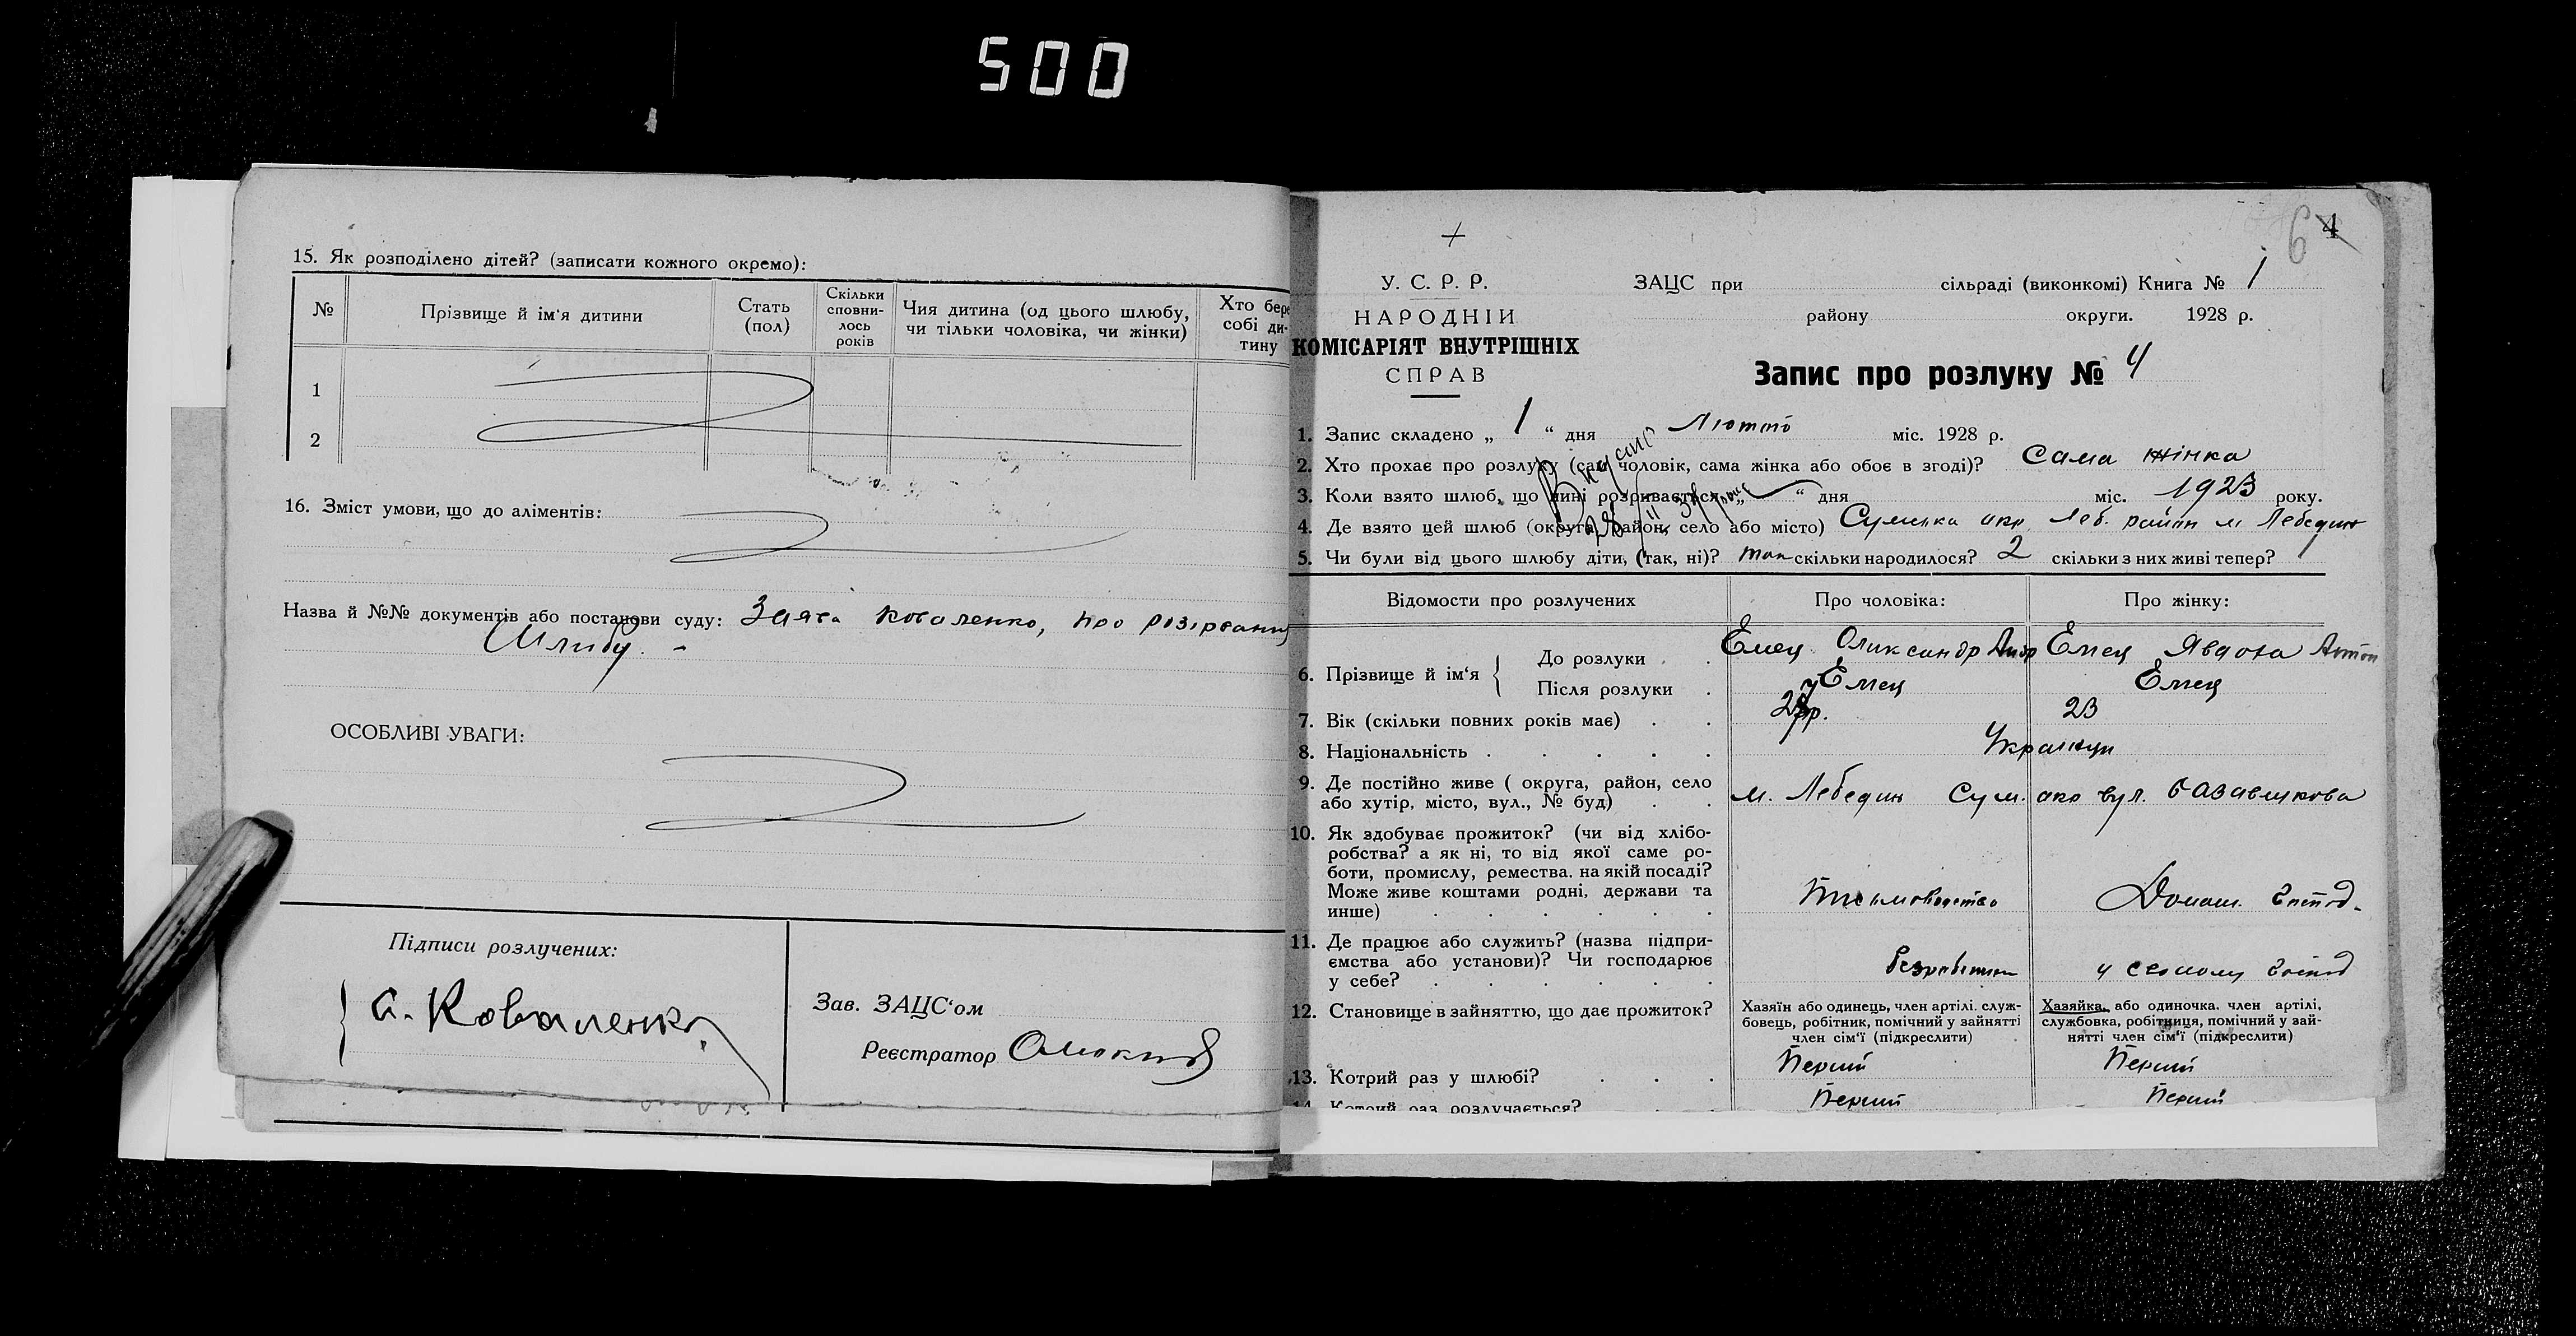 500
15. Як розподілено дітей? (записати кожного окремо):
№
Прізвище й ім'я дитини
Стать
(пол)
Скільки
сповни-
лось
років
Чия дитина (од цього шлюбу,
чи тільки чоловіка, чи жінки)
Хто бере
собі ди-
тину
1
2
16. Зміст умови, що до аліментів:
Назва й №№ документів або постанови суду: Заява Коваленко, про розірвання
Шлюбу. -
ОСОБЛИВІ УВАГИ:
Підписи розлучених:
С. Коваленко
Зав. ЗАЦС'ом
Реєстратор
6 4
У. С. Р. Р.
НАРОДНІЙ
КОМІСАРІЯТ ВНУТРІШНІХ
СПРАВ
ЗАЦС при сільраді (виконкомі) Книга № 1
району округи. 1928 р.
Запис про розлуку № 4
1. Запис складено „ 1 “ дня Лютого міс. 1928 р.
2. Хто прохає про розлуку (сам чоловік, сама жінка або обоє в згоді)? Сама жінка
3. Коли взято шлюб, що нині розривається „ “ дня міс. 1923 року.
4. Де взято цей шлюб (округа, район, село або місто) Сумська окр. Леб. район м Лебедин
5. Чи були від цього шлюбу діти, (так, ні)? так скільки народилося? 2 скільки з них живі тепер? 1
Відомости про розлучених
Про чоловіка:
Про жінку:
6. Прізвище й ім'я
До розлуки . Емец Олександр Андр Емец Явдоха Антон
Після розлуки . Емец Емец
7. Вік (скільки повних років має) . . 27 р. 23
8. Національність . . . . . Українци
9. Де постійно живе ( округа, район, село
або хутір, місто, вул., № буд) . . м. Лебедин Сум. окр вул.
10. Як здобуває прожиток? (чи від хлібо-
робства? а як ні, то від якої саме ро-
боти, промислу, ремества. на якій посаді?
Може живе коштами родні, держави та
инше) . . . . . . Письмоводство Домаш. господ.
11. Де працює або служить? (назва підпри-
ємства або установи)? Чи господарює
у себе? . . . . . . безробітний у своєму господ
12. Становище в зайняттю, що дає прожиток?
Хазяїн або одинець, член артілі. служ-
бовець, робітник, помічний у зайнятті
член сім'ї (підкреслити)
Хазяйка, або одиночка. член артілі,
службовка, робітниця, помічний у зай-
нятті член сім'ї (підкреслити)
13. Котрий раз у шлюбі? . . . Перший Перший
14. Котрий раз розлучається? Перший Перший